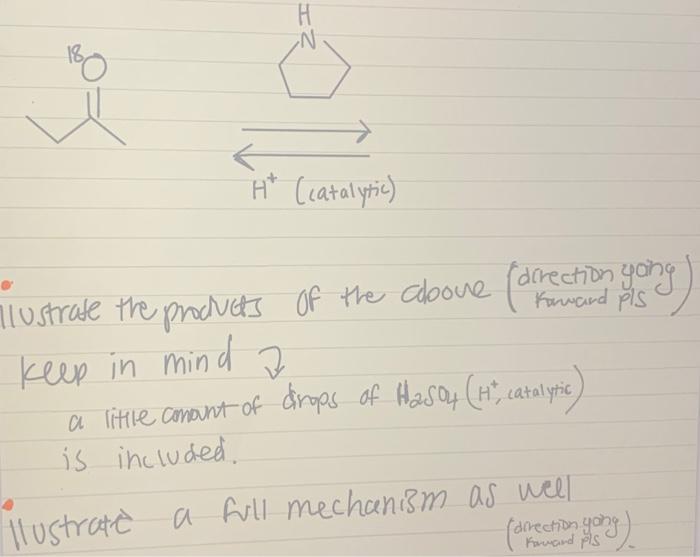 H
N
18
O
H+ (catalytic)
Illustrate the products of the above (direction going
forward pls)
keep in mind
a little amount of drops of H2SO4 (H+, catalytic)
is included.
Illustrate a full mechanism as well
(direction going
forward pls).